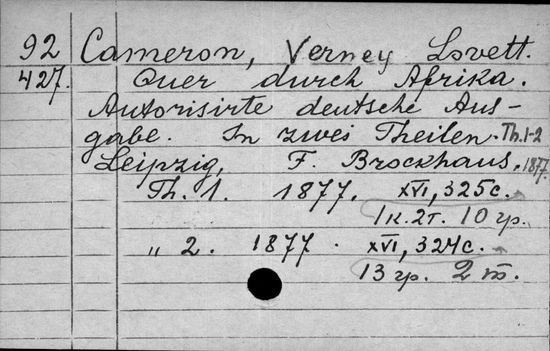 92 Cameron, Verney Lovett.
427. Quer durch Afrika.
Autorisirte deutsche Aus-
gabe. In zwei Theilen. Th. 1-2
Leipzig, F. Brockhaus, 1877.
Th. 1. 1877. XVI, 325 с.
1 к. 2 т. 10 гр.
„ 2. 1877. XVI, 324 с.
13 гр. 2